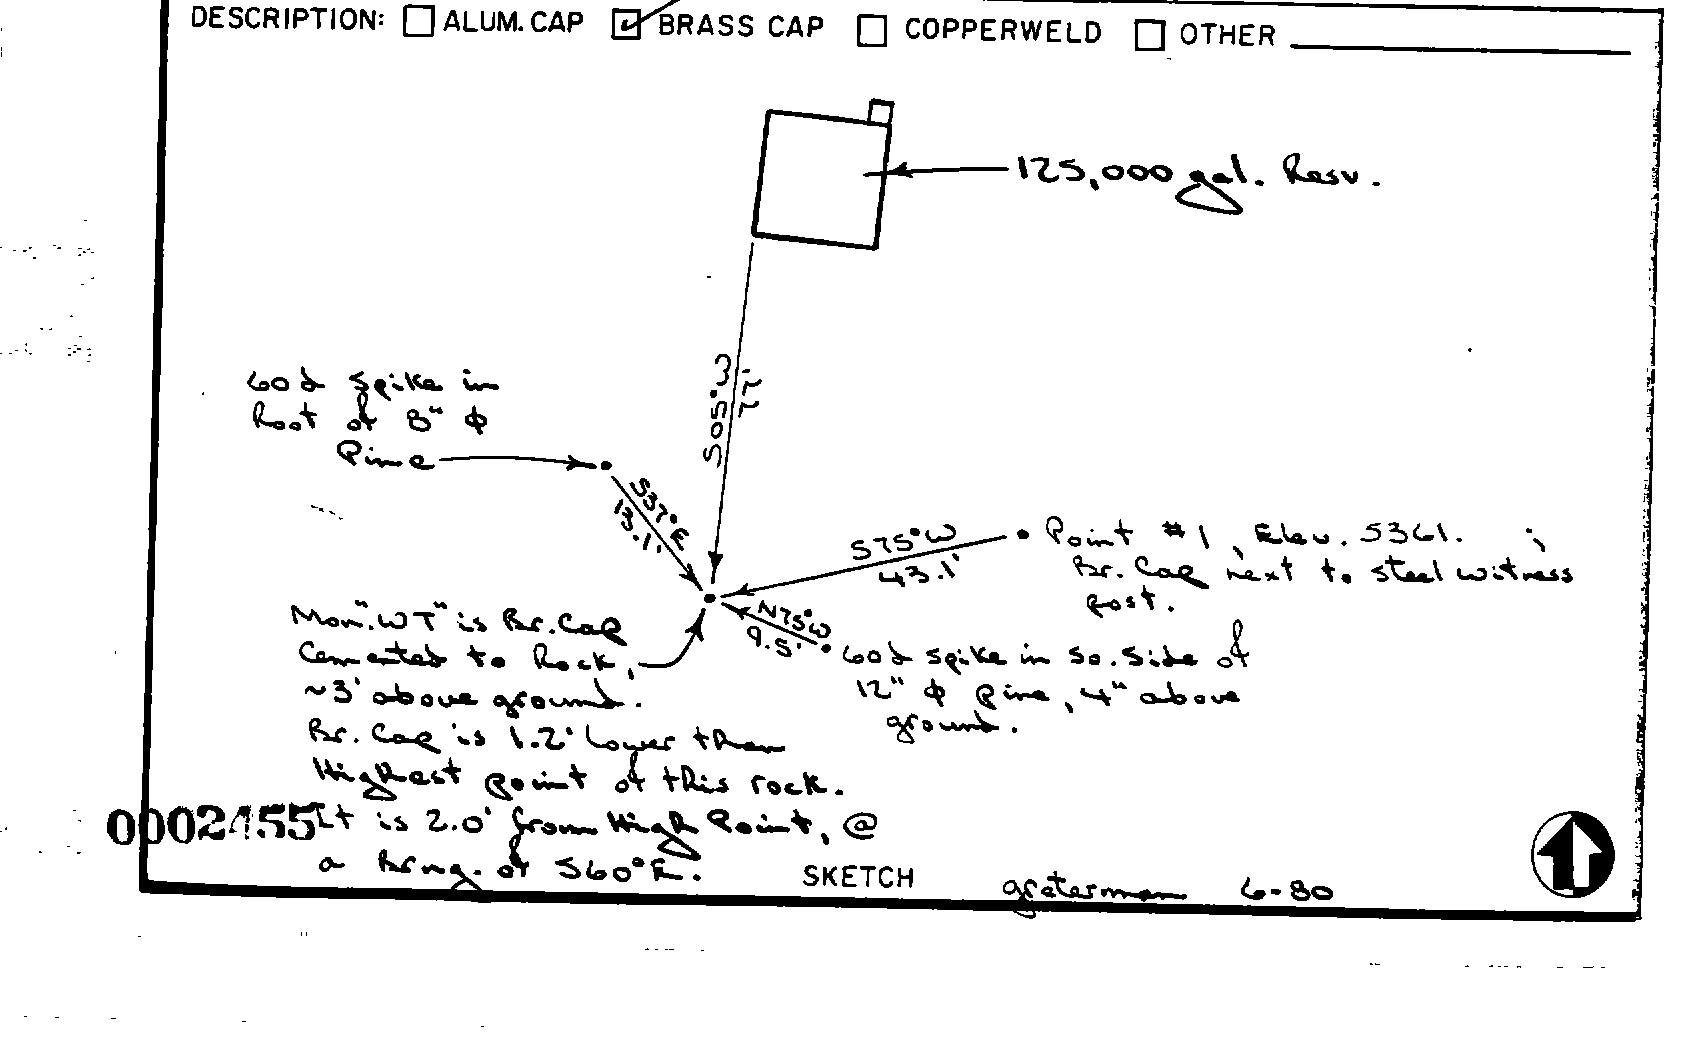 DESCRIPTION: ALUM. CAP BRASS CAP COPPERWELD OTHER
125,000 gal. Resv.
S05°W
77'
60d Spike in
Root of 8" ⌀
Pine
S37°E
13.1'
S75°W
43.1'
Point #1, Elev. 5361. ;
Br. Cap next to steel witness
post.
N75°W
9.5'
60d spike in So. Side of
12" ⌀ pine, 4" above
ground.
Mon. "WT" is Br. Cap
Cemented to Rock,
~3' above ground.
Br. Cap is 1.2' lower than
Highest point of this rock.
It is 2.0' from High Point, @
a brng. of S60°E.
0002455
SKETCH
6-80